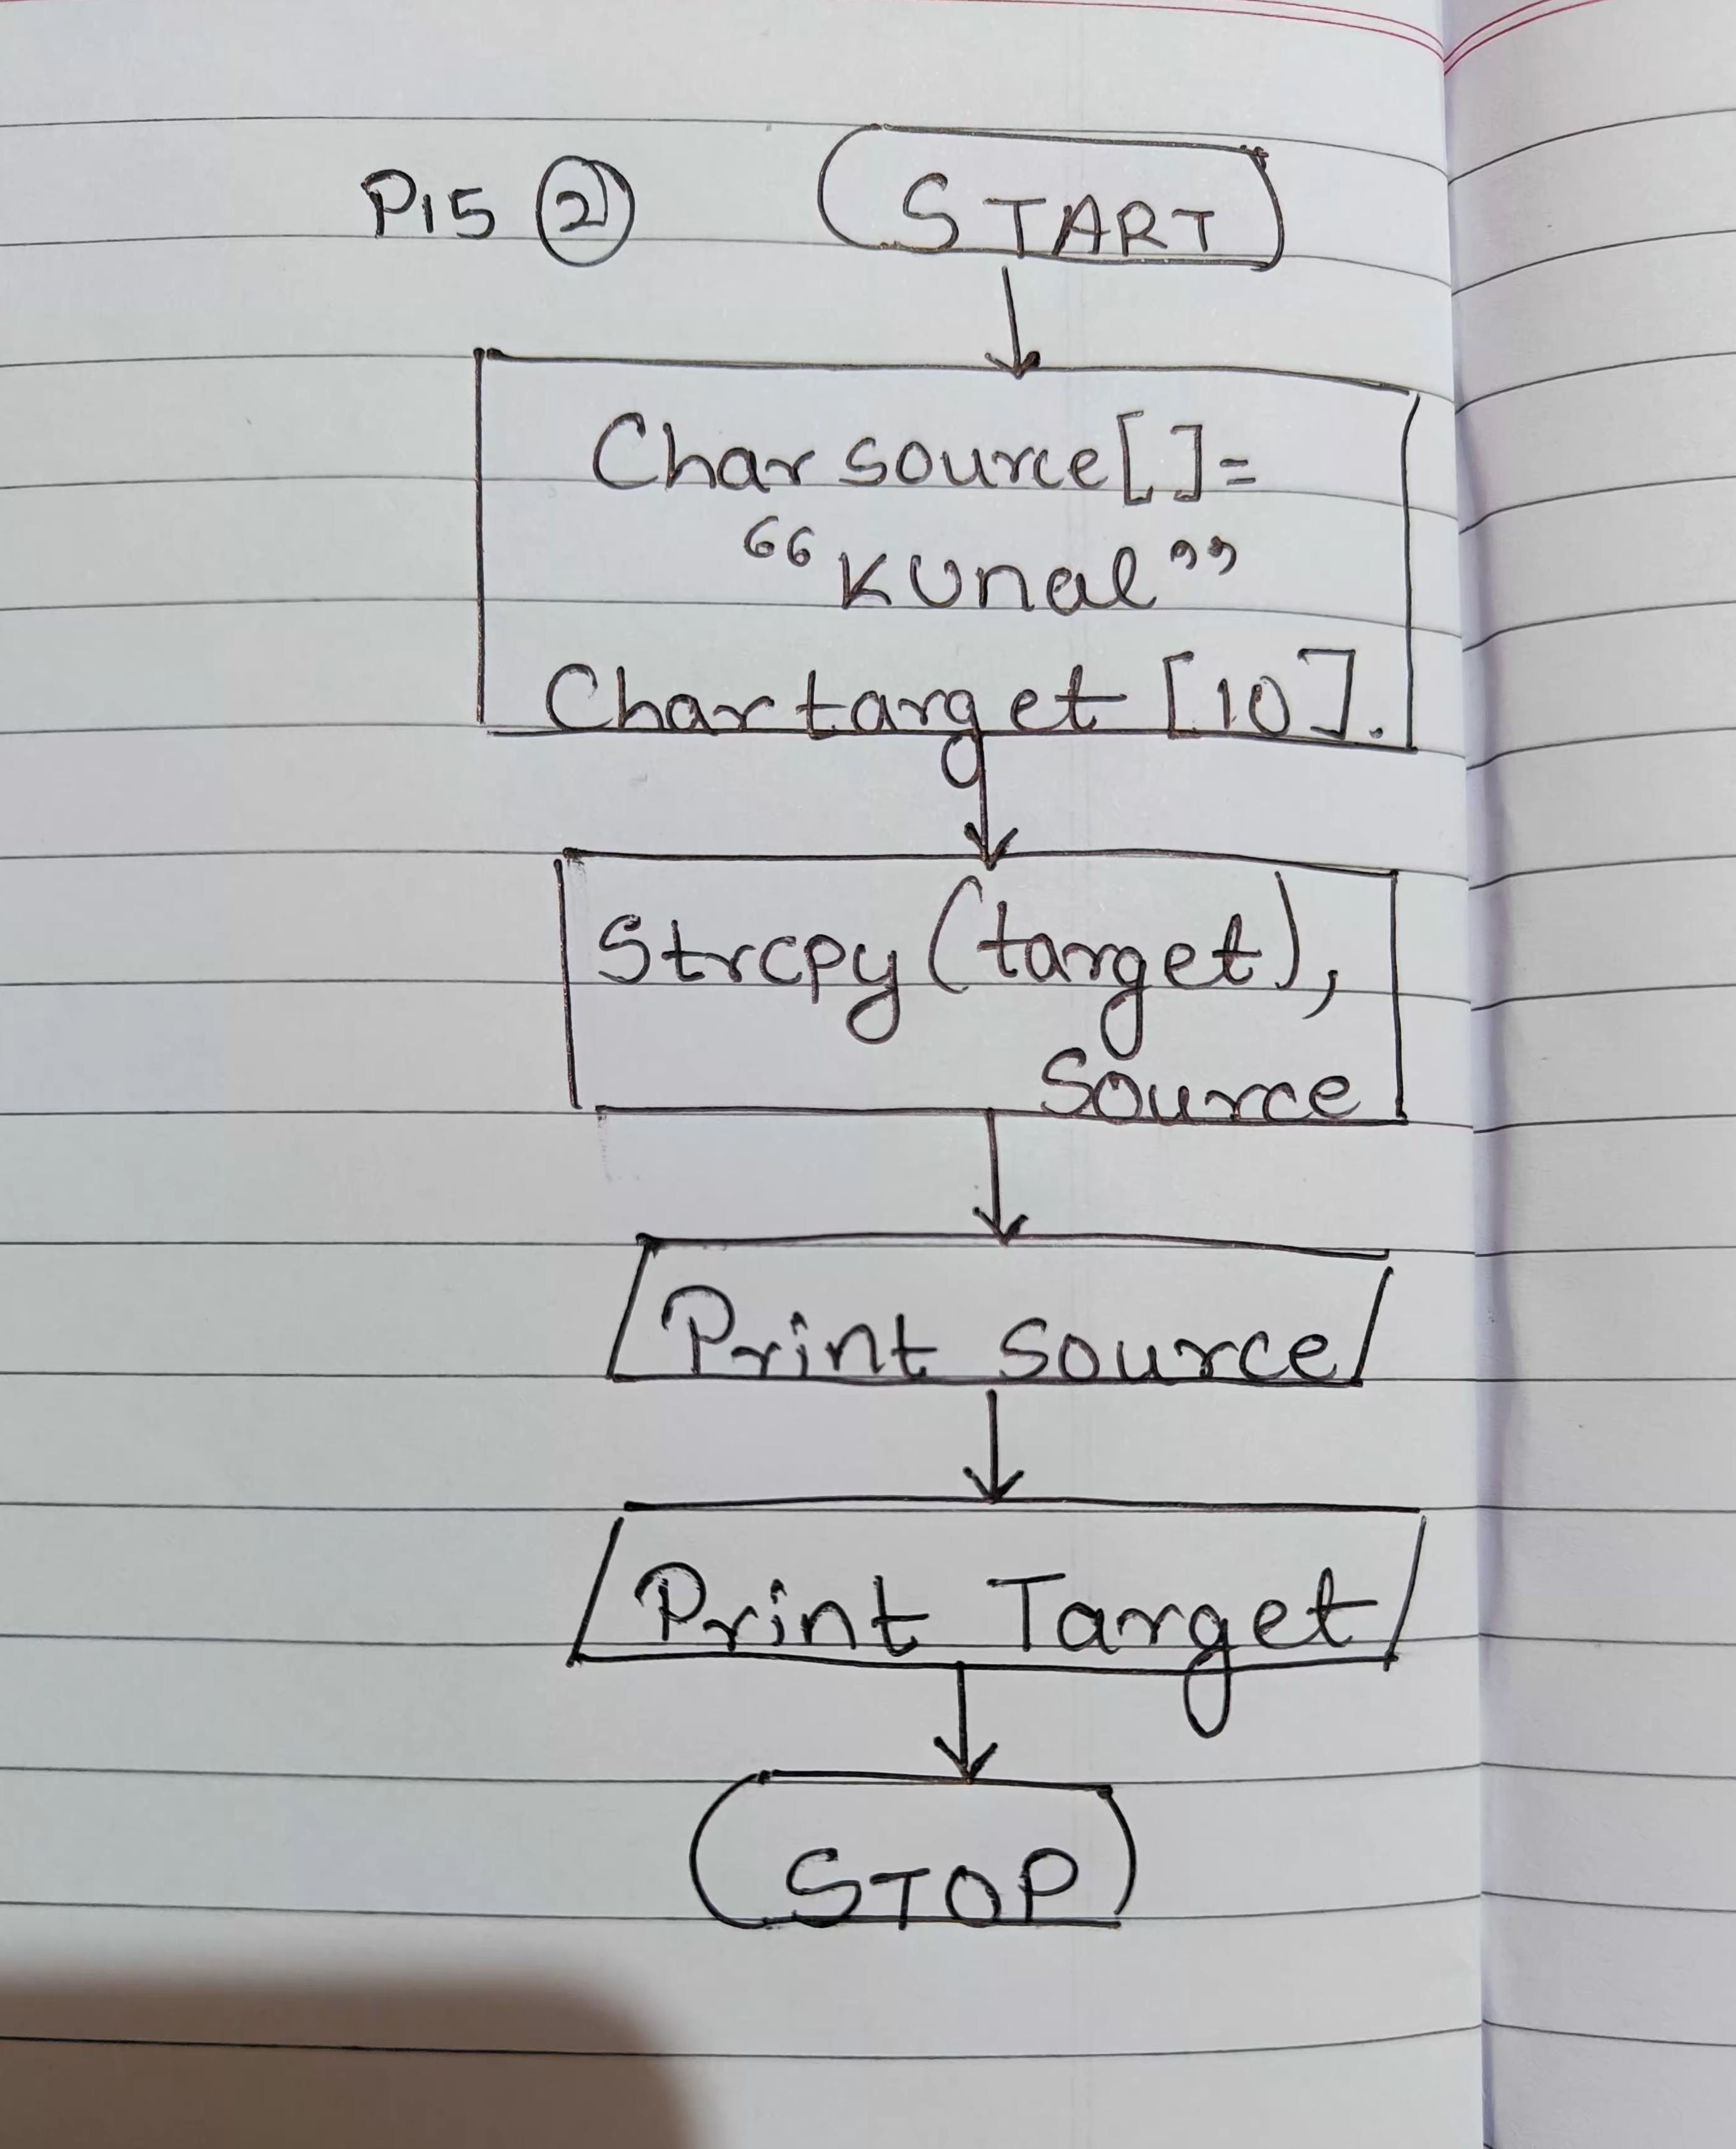 P15 ② START
Char source[]=
“Kunal”
Char target [10].
Strcpy (target),
Source
Print Source
Print Target
STOP